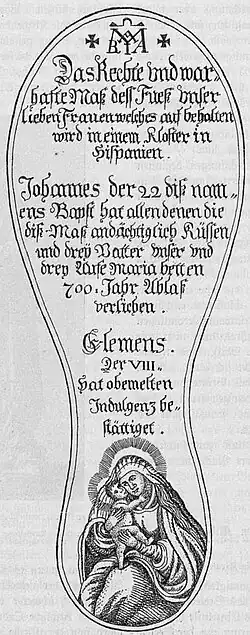 Das Rechte vnd war-
hafte Maß dess Fuess vnser
lieben Frauen welches auf behalten
wird in einem Kloster in
Hispanien.
Johannes der 22 diß nam-
ens Bapst hat allen denen die
diß-Maß andächtiglich Küssen
und drey Vatter vnser vnd
drey Aue Maria betten
700. Jahr Ablaß
verlichen.
Clemens.
Der VIII.
Hat obemelten
Indulgenz be-
stättiget.